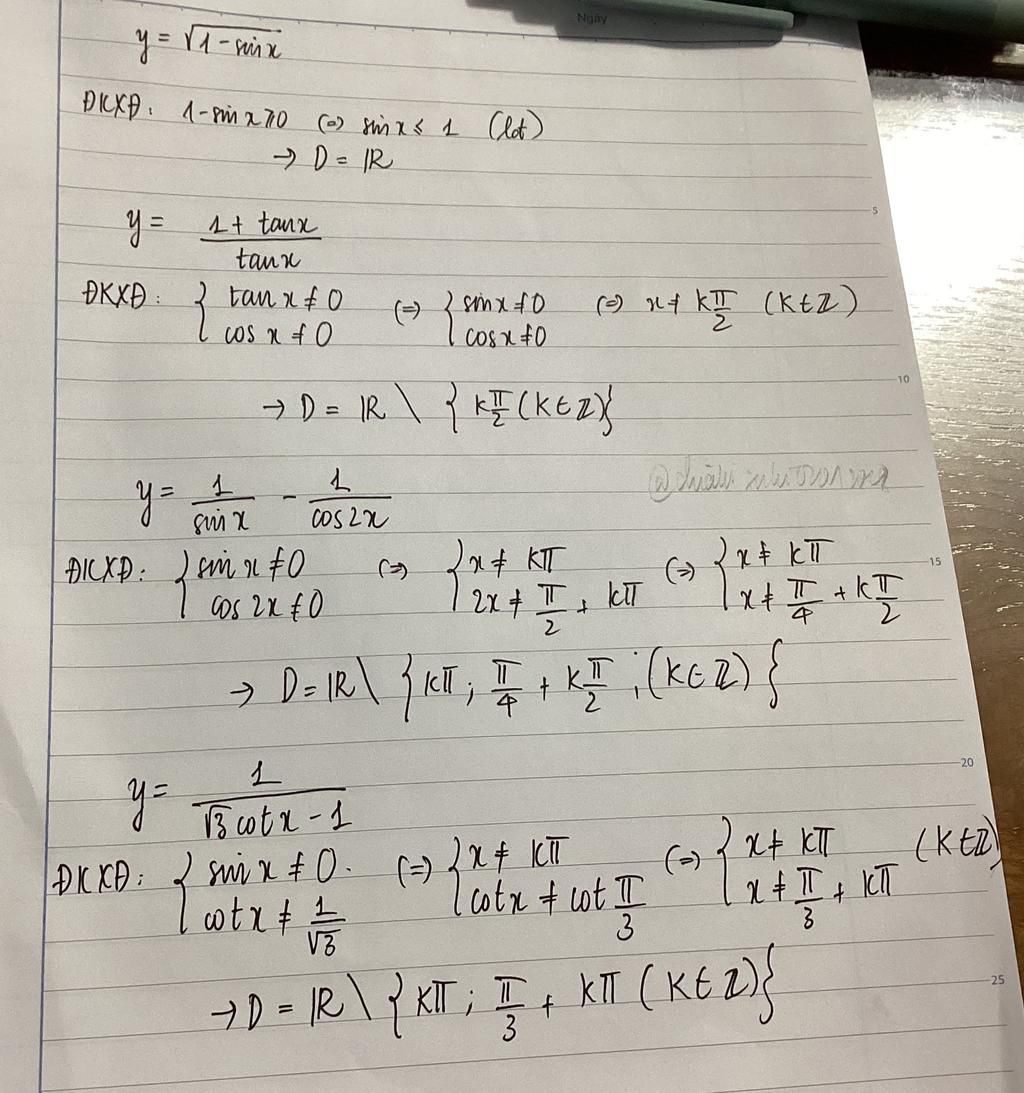 Ngày
y = √(1 - sin x)
ĐKXĐ: 1 - sin x ≥ 0 (=) sin x ≤ 1 (lđ)
→ D = ℝ
5
y = (1 + tan x)/(tan x)
ĐKXĐ: { tan x ≠ 0 ; cos x ≠ 0 (=) { sin x ≠ 0 ; cos x ≠ 0 (=) x ≠ kπ/2 (k∈ℤ)
10
→ D = ℝ \ { kπ/2 (k∈ℤ)}
y = 1/(sin x) - 1/(cos 2x)
ĐKXĐ: { sin x ≠ 0 ; cos 2x ≠ 0 (=) { x ≠ kπ ; 2x ≠ π/2 + kπ (=) { x ≠ kπ ; x ≠ π/4 + kπ/2
15
→ D = ℝ \ { kπ ; π/4 + kπ/2 ; (k∈ℤ) }
20
y = 1/(√3 cot x - 1)
ĐKXĐ: { sin x ≠ 0. ; cot x ≠ 1/√3 (=) { x ≠ kπ ; cot x ≠ cot π/3 (=) { x ≠ kπ ; x ≠ π/3 + kπ (k∈ℤ)
25
→ D = ℝ \ { kπ ; π/3 + kπ (k∈ℤ)}